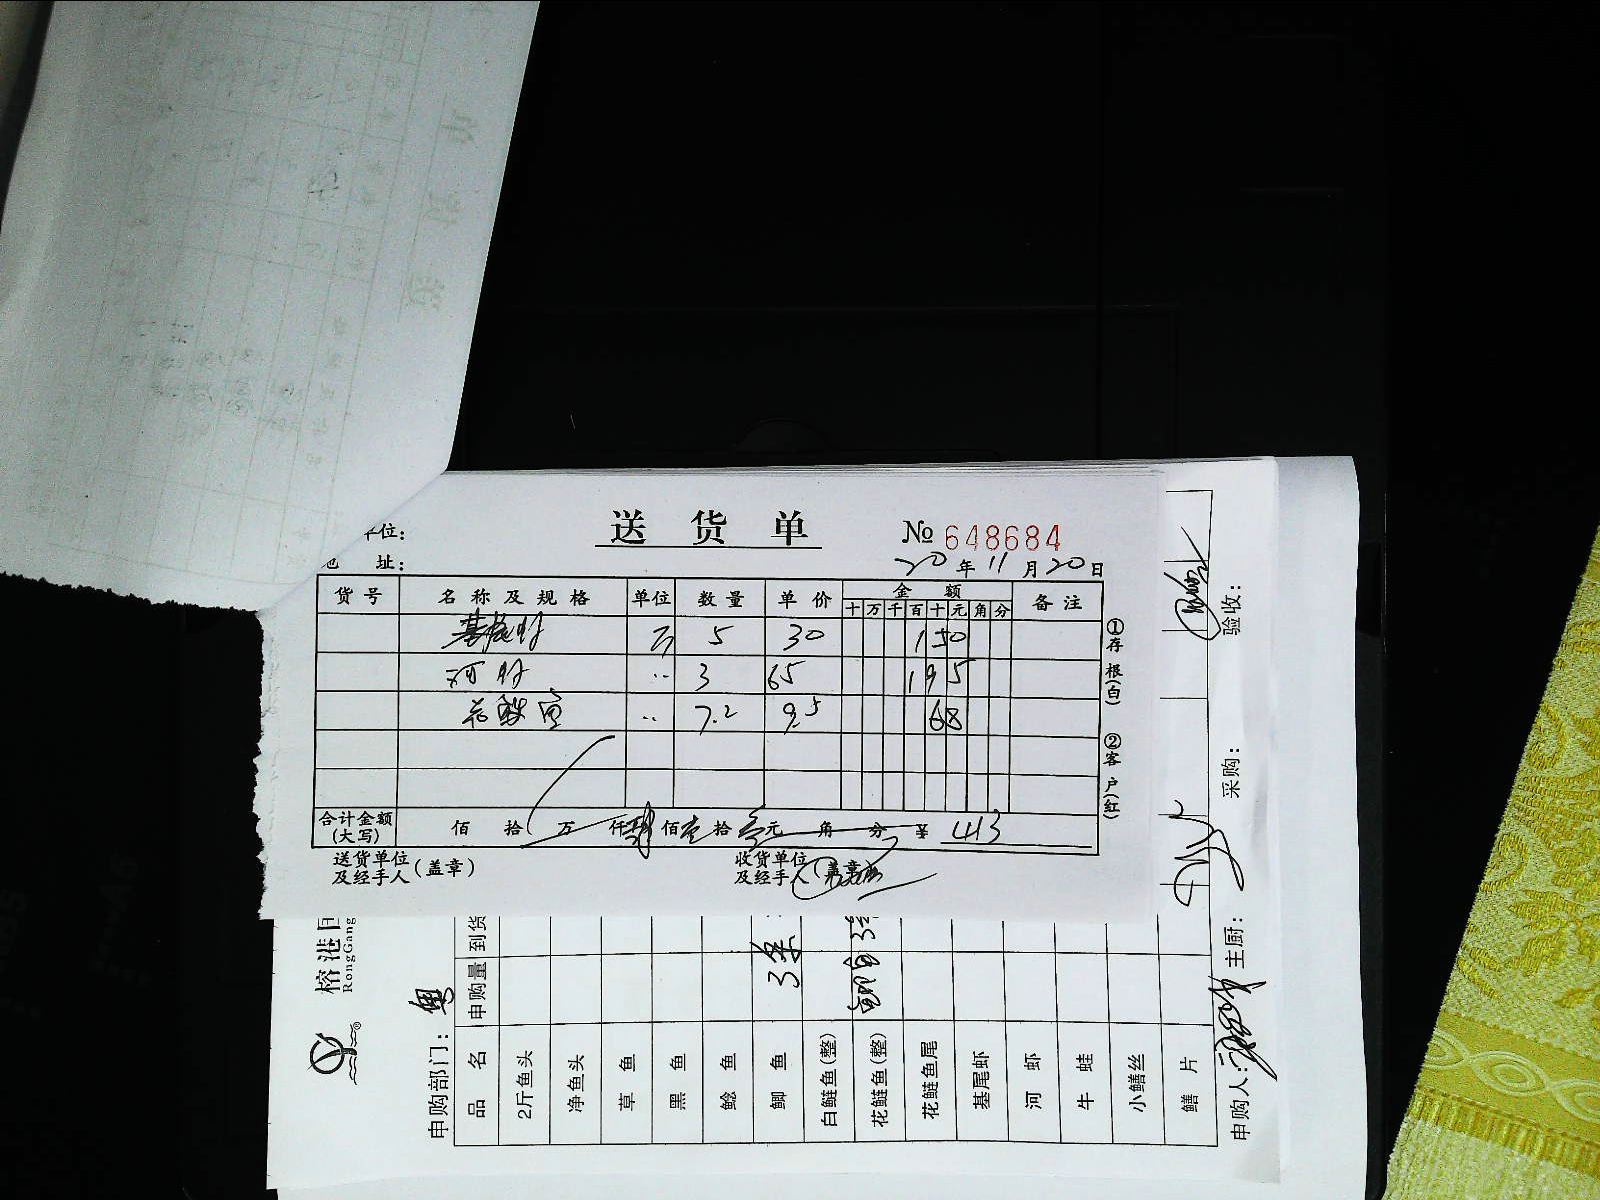 送货单 № 648684
单位:
址: 20年11月20日
货号 名称及规格 单位 数量 单价 金额 备注
十 万 千 百 十 元 角 分
基尾虾 斤 5 30 150
河虾 〃 3 65 195
花鲢鱼 〃 7.2 9.5 68
合计金额(大写) 佰 拾 万 仟 肆佰壹拾叁元 角 分 ¥ 413
送货单位及经手人(盖章) 收货单位及经手人(盖章)
①存根(白) ②客户(红)
榕港
RongGang
申购部门: 粤
品名 申购量 到货
2斤鱼头
净鱼头
草鱼
黑鱼
鲶鱼
鲫鱼 3条
白鲢鱼(整)
花鲢鱼(整)
花鲢鱼尾
基尾虾
河虾
牛蛙
小鳝丝
鳝片
申购人: 主厨: 采购: 验收: